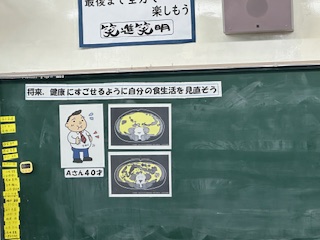 最後まで全力で
楽しもう
笑進笑明
将来、健康にすごせるように自分の食生活を見直そう
Aさん40才